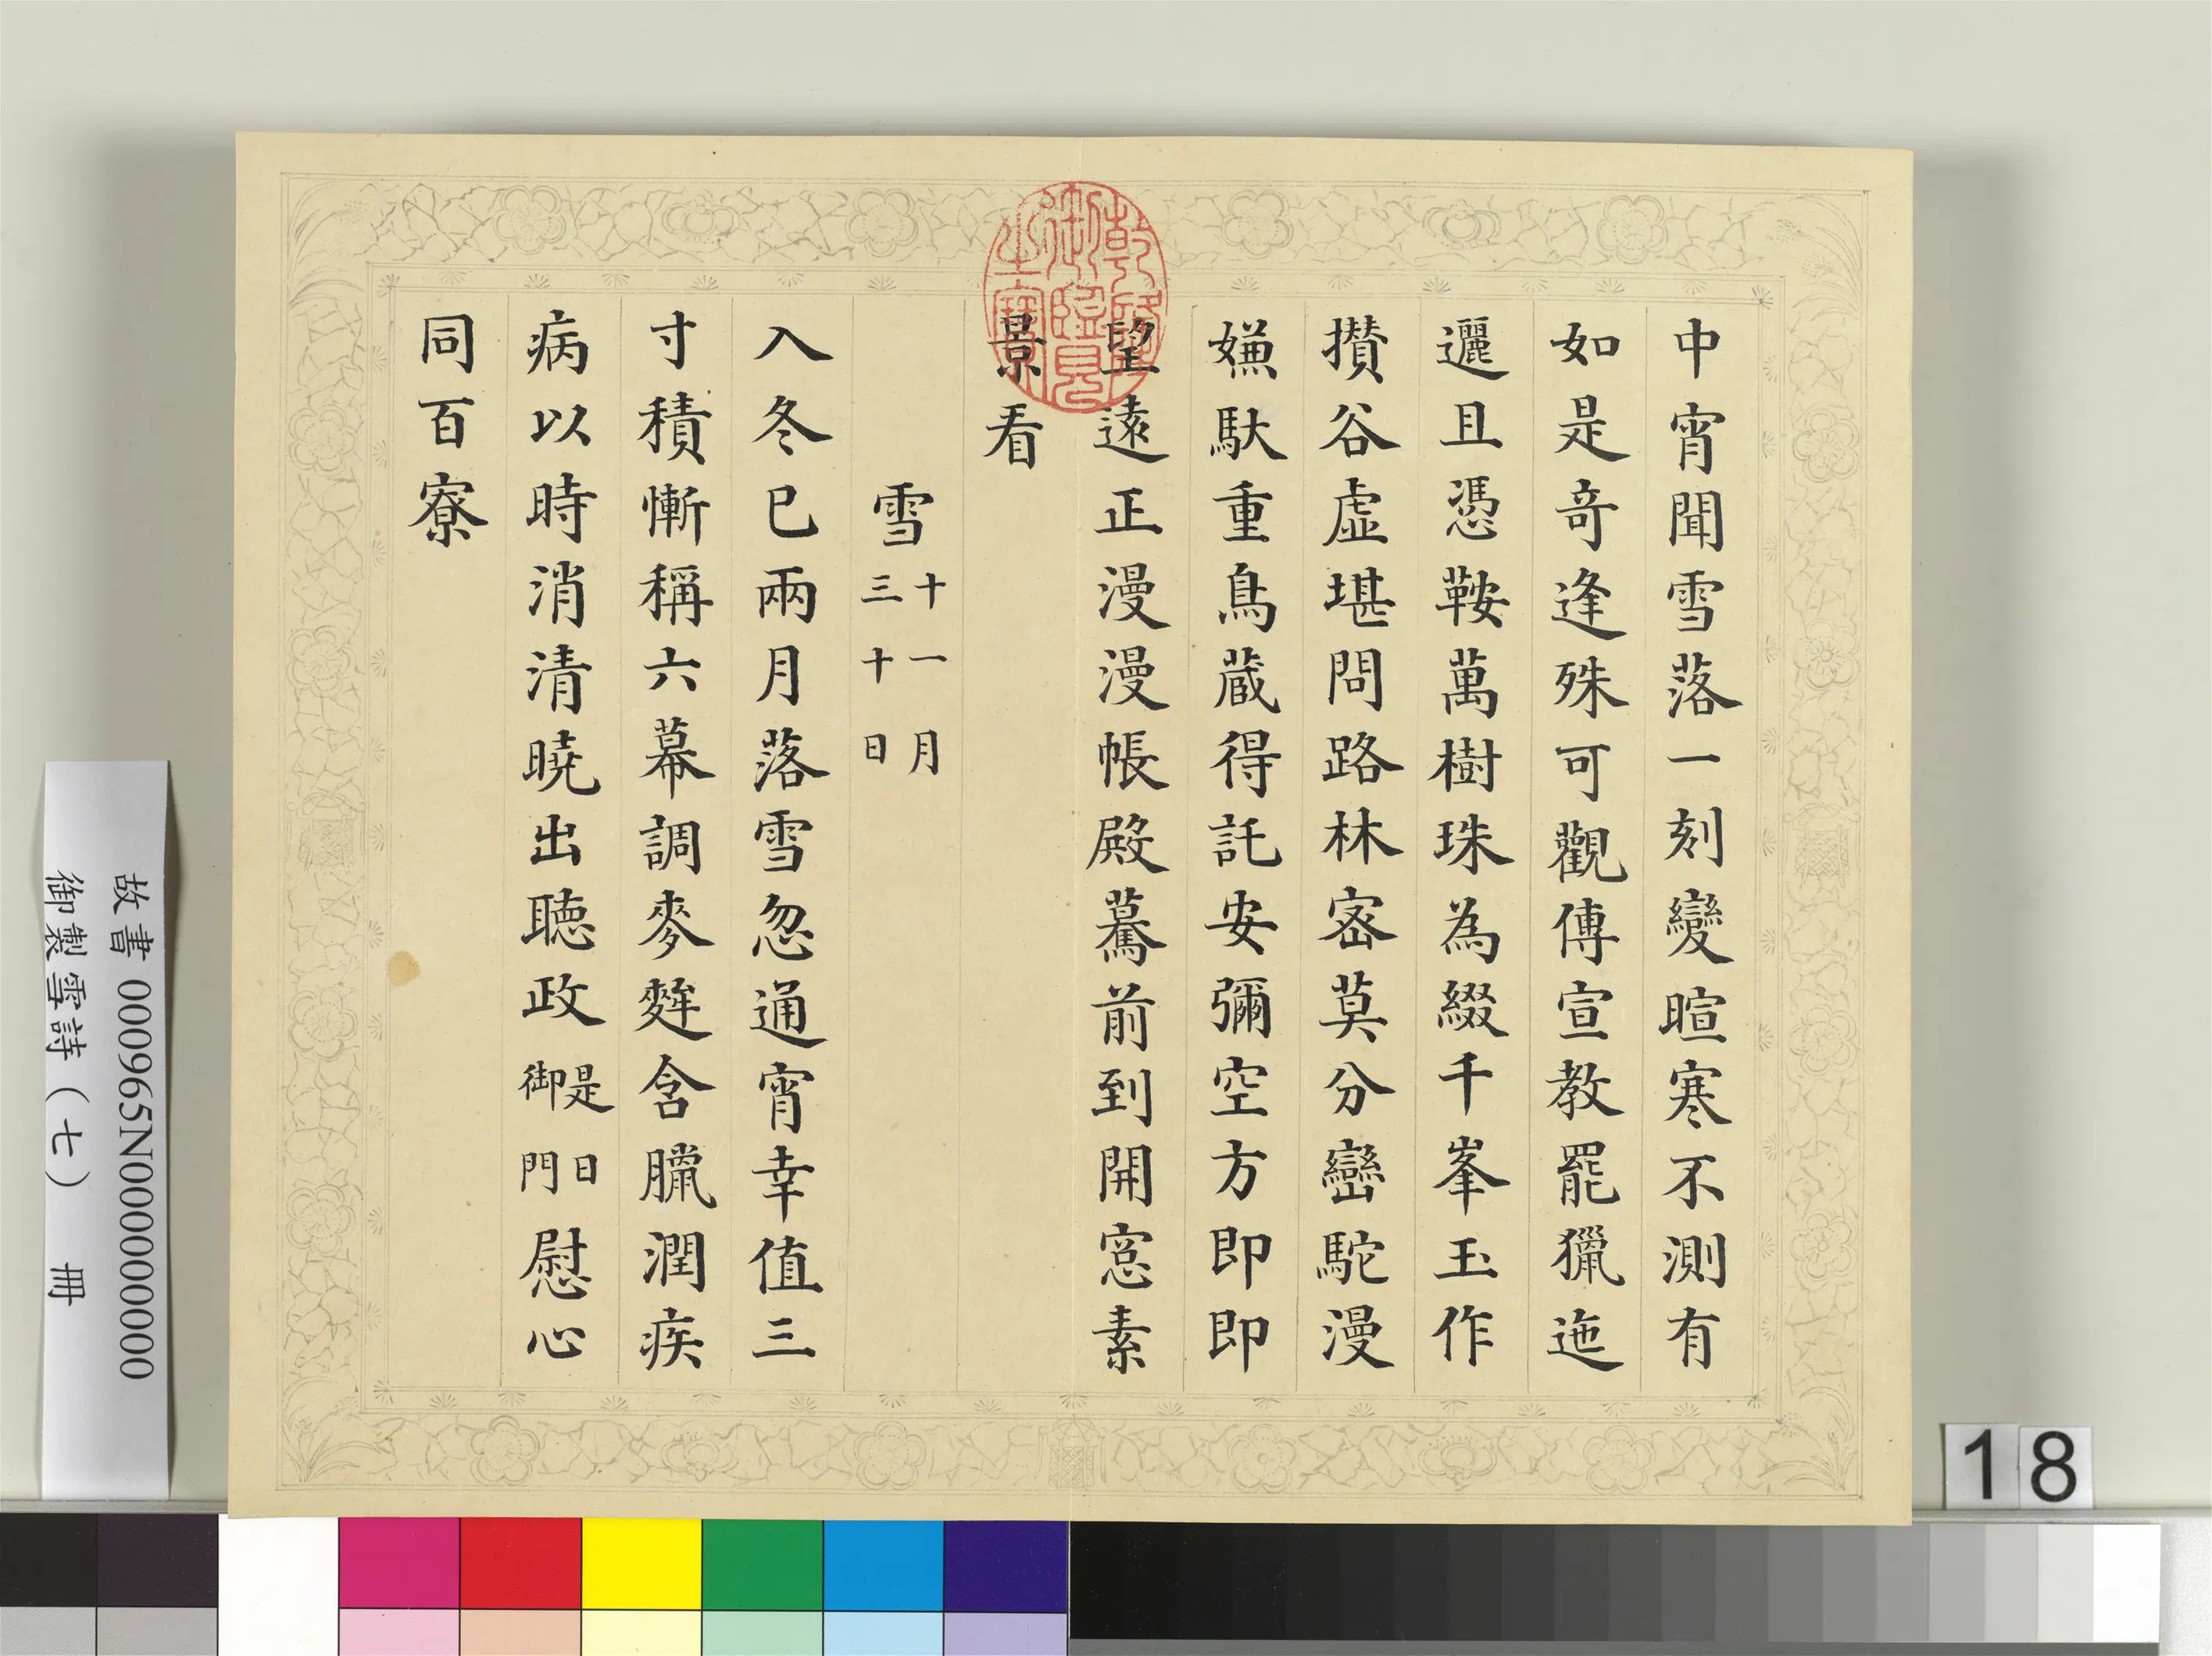 中宵聞雪落一刻變暄寒不測有
如是奇逢殊可觀傳宣教罷獵迤
邐且憑鞍萬樹珠為綴千峯玉作
攢谷虛堪問路林密莫分巒駝漫
嫌馱重鳥蔵得託安彌空方即即
望遠正漫漫帳殿驀前到開窓素
景看
雪十一月三十日
入冬已兩月落雪忽通宵幸值三
寸積慚稱六幕調麥麰含臘潤疾
病以時消清曉出聽政是日御門慰心
同百寮
乾隆御覽之寶
故書 000965N000000000
御製雪詩(七) 冊
18